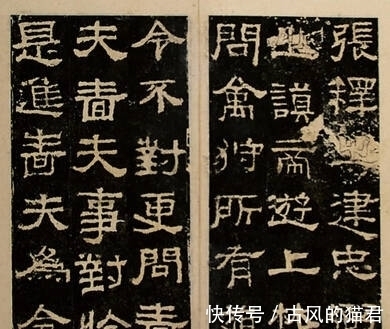 張釋建忠
之謨帝遊上
問禽狩所有
令不對更問嗇
夫嗇夫事對於
是進嗇夫為令
快传号/古风的猫君